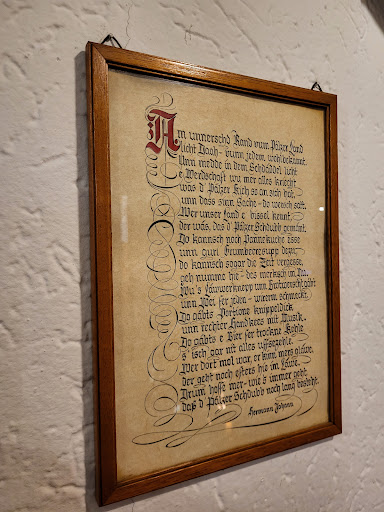 Am unnerschd Rand vum Pälzer Land
licht Dach- vunn jedem wohlbekannt.
Unn medde in dem Schdäddel licht
e Werdschaft wu mer alles kriecht
was d' Pälzer Kich so an sich hat,
unn dass sinn Sache - do wersch satt.
Wer unser Land e bissel kennt,
der wäs, das d' Pälzer Schdubb gemänt.
Do kannsch noch Pannekuche esse
unn guri Grumbeeresupp dezu,
do kannsch sogar die Zeit vergesse,
geh numme hie - des merksch im Nu.
Wu's Läwwerknepp unn Brotwerscht gäbt
unn Woi fer jeden - wiem's schmeckt.
Do gäbts Portione knüppeldick
unn rechter Handkees mit Musik.
Do gäbts e Bier fer trockne Kehle
s' isch gar nit alles uffzezehle.
Wer dort mol war, er kann mers glawe,
der geht noch efters hie im Läwe.
Drum hoff mer- wie's immer geht
daß d' Pälzer Schdubb noch lang besteht.
Hermann Johann